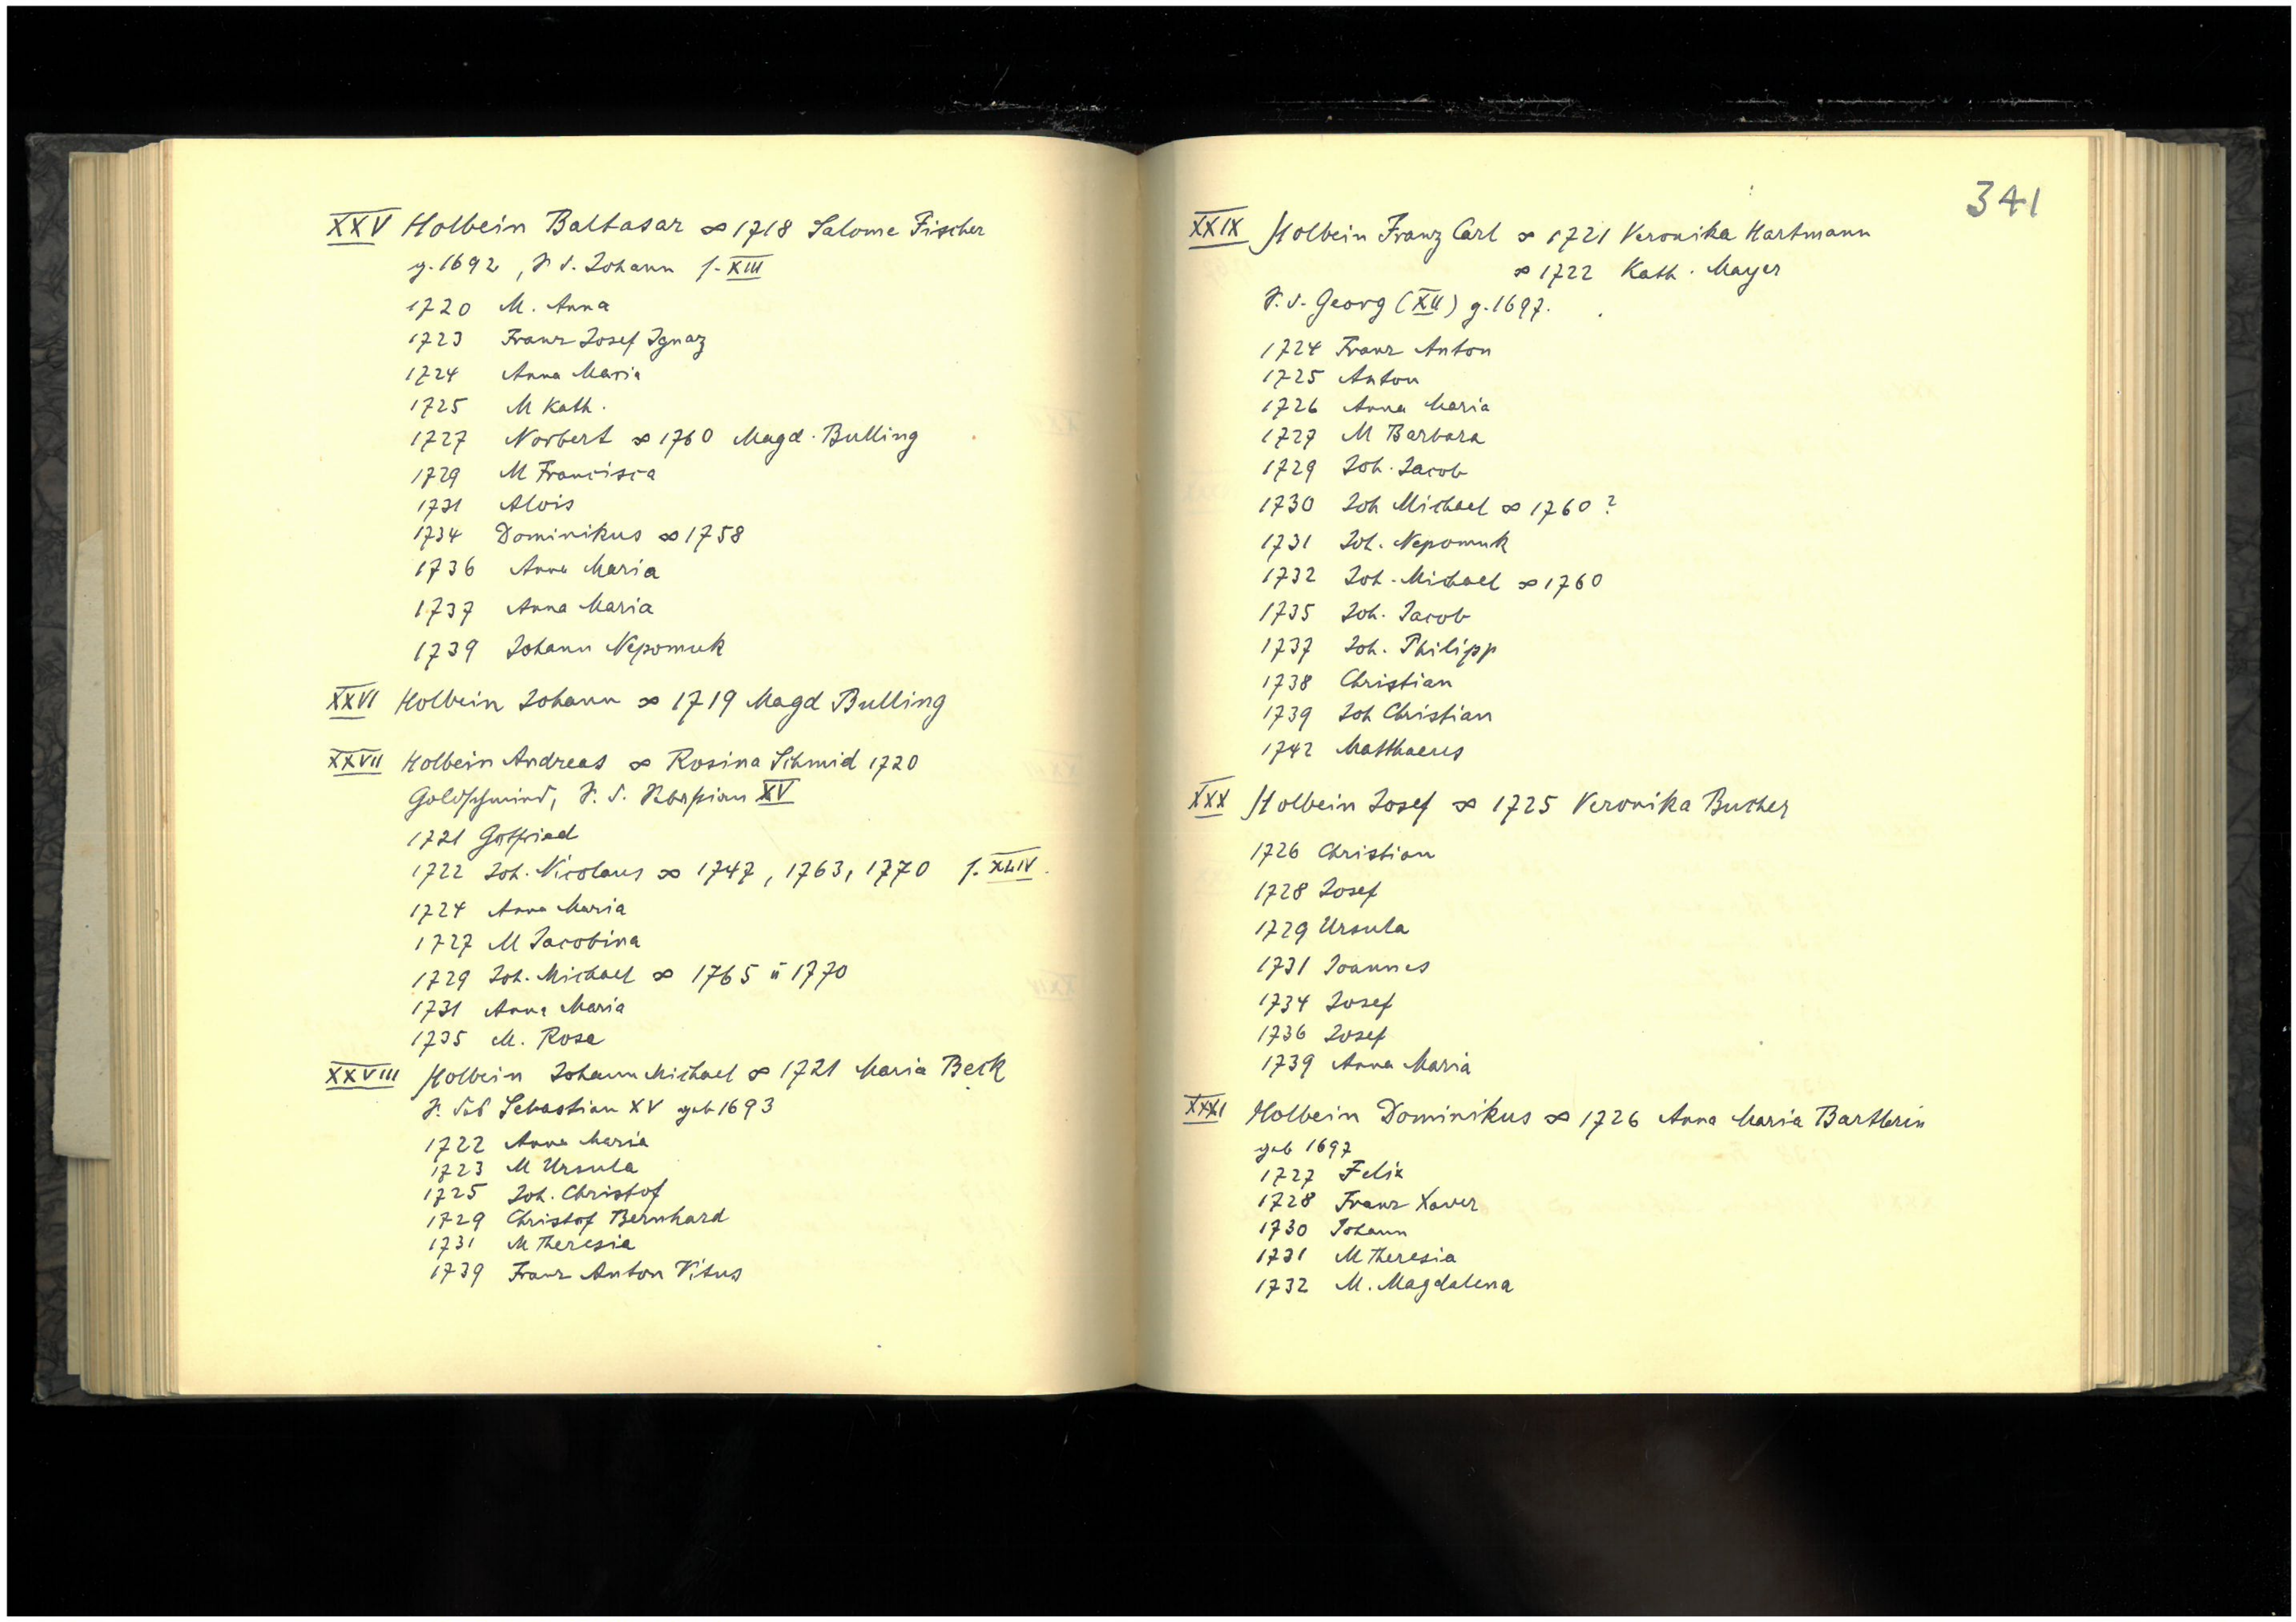 XXV Holbein Baltasar ∞ 1718 Salome Fischer
g. 1692, S. d. Johann s. XIII
1720 M. Anna
1723 Franz Josef Ignaz
1724 Anna Maria
1725 M Kath.
1727 Norbert ∞ 1760 Magd. Bulling
1729 M Francisca
1731 Alois
1734 Dominikus ∞ 1758
1736 Anna Maria
1737 Anna Maria
1739 Johann Nepomuk
XXVI Holbein Johann ∞ 1719 Magd Bulling
XXVII Holbein Andreas ∞ Rosina Schmid 1720
Goldschmied, S. d. Sebastian XV
1721 Gotfried
1722 Joh. Nicolaus ∞ 1747, 1763, 1770 s. XLIV.
1724 Anna Maria
1727 M Jacobina
1729 Joh. Michael ∞ 1765 u 1770
1731 Anna Maria
1735 M. Rosa
XXVIII Holbein Johann Michael ∞ 1721 Maria Beck
S. des Sebastian XV geb 1693
1722 Anna Maria
1723 M Ursula
1725 Joh. Christof
1729 Christof Bernhard
1731 M Theresia
1739 Franz Anton Vitus
341
XXIX Holbein Franz Carl ∞ 1721 Veronika Hartmann
∞ 1722 Kath. Mayer
S. d. Georg (XII) g. 1697.
1724 Franz Anton
1725 Anton
1726 Anna Maria
1727 M Barbara
1729 Joh. Jacob
1730 Joh Michael ∞ 1760 ?
1731 Joh. Nepomuk
1732 Joh. Michael ∞ 1760
1735 Joh. Jacob
1737 Joh. Philipp
1738 Christian
1739 Joh Christian
1742 Matthaeus
XXX Holbein Josef ∞ 1725 Veronika Bucher
1726 Christian
1728 Josef
1729 Ursula
1731 Joannes
1734 Josef
1736 Josef
1739 Anna Maria
XXXI Holbein Dominikus ∞ 1726 Anna Maria
geb 1697
1727 Felix
1728 Franz Xaver
1730 Johann
1731 M Theresia
1732 M. Magdalena